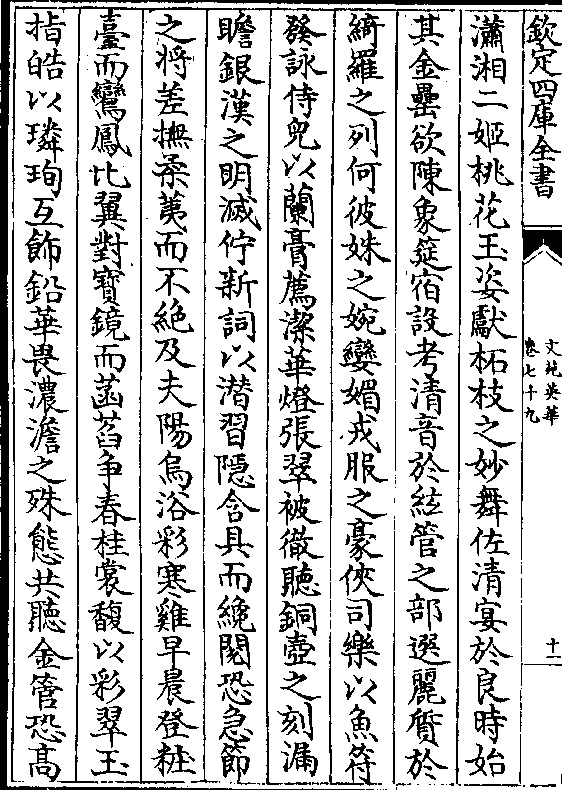 欽定四庫全書
文苑英華
卷七十九
十一
瀟湘二姬桃花玉姿獻柘枝之妙舞佐清宴於良時始
其金罍欲陳象筵宿設考清音於絃管之部選麗質於
綺羅之列何彼姝之婉孌媚戎服之豪俠司樂以魚符
發詠侍兒以蘭膏薦潔華燈張翠被徹聽銅壺之刻漏
瞻銀漢之明滅佇新詞以潜習隠含具而纔閱恐急節
之将差撫柔荑而不絶及夫陽烏浴彩寒雞早晨登粧
臺而鸞鳳比翼對寳鏡而菡萏争春桂裳馥以彩翠玉
指皓以璘珣互飾鉛華畏濃澹之殊態共聽金管恐髙